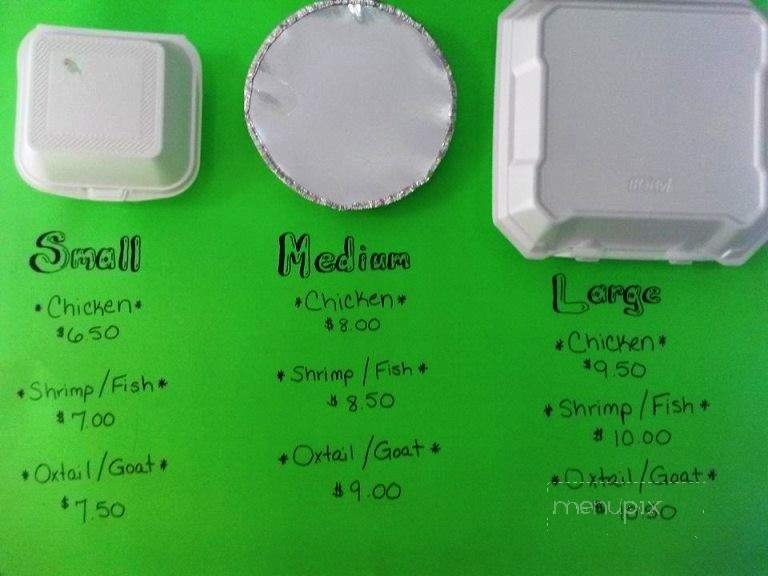 Small
*Chicken*
$6.50
*Shrimp/Fish*
$7.00
*Oxtail/Goat*
$7.50
Medium
*Chicken*
$8.00
*Shrimp/Fish*
$8.50
*Oxtail/Goat*
$9.00
Large
*Chicken*
$9.50
*Shrimp/Fish*
$10.00
*Oxtail/Goat*
menupix